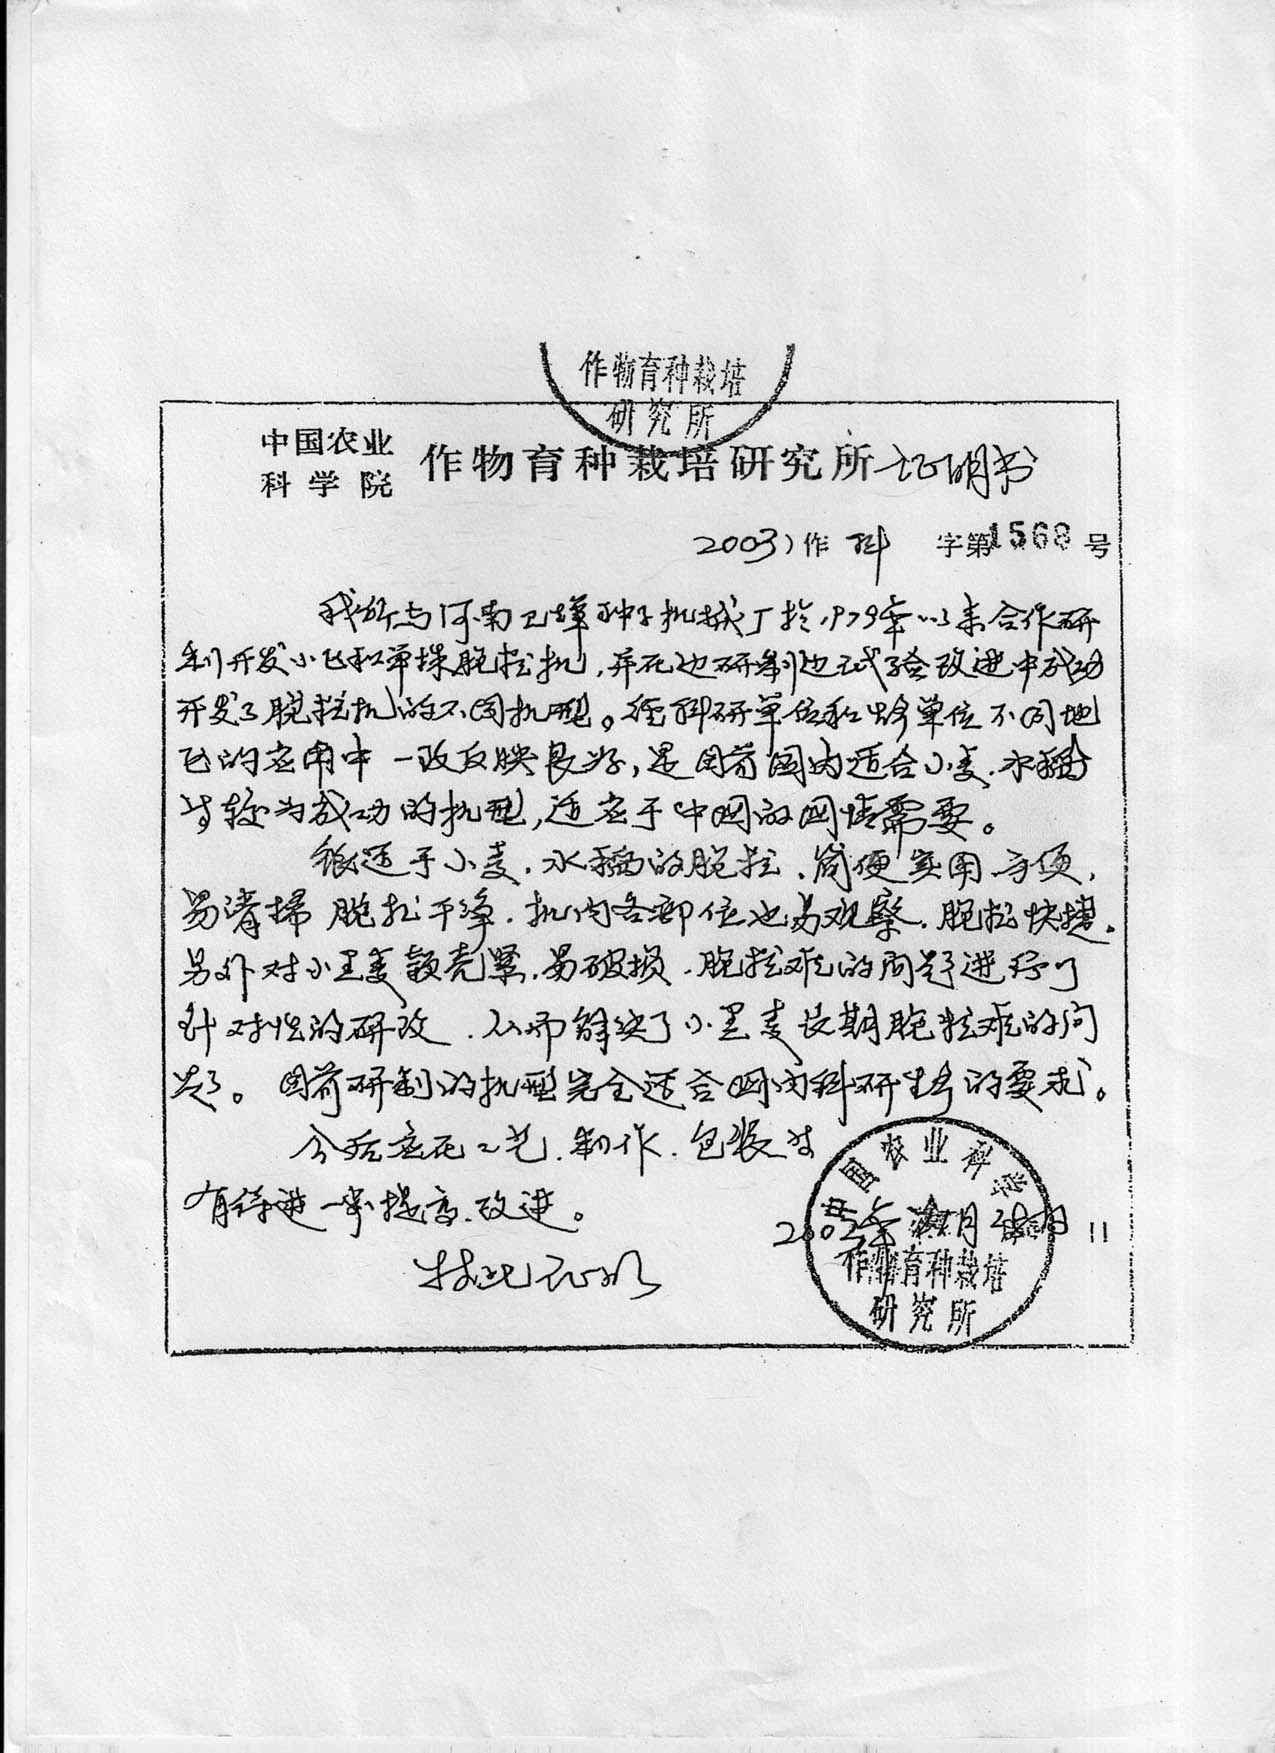 作物育种栽培
研究所
中国农业
科学院
作物育种栽培研究所证明书
2003)作科 字第1568号
我所与河南卫辉种子机械厂于1979年以来合作研
制开发小区和单株脱粒机,并在边研制边试验改进中成功
开发了脱粒机的不同机型。经科研单位和生产单位不同地
区的应用中一致反映良好,是目前国内适合小麦、水稻
等较为成功的机型,适应于中国的国情需要。
能适于小麦、水稻的脱粒、简便实用方便,
易清扫 脱粒干净、机内各部位也易观察、脱粒快捷。
另外对小黑麦颖壳紧、易破损、脱粒难的问题进行了
针对性的研改、从而解决了小黑麦长期脱粒难的问
题。目前研制的机型完全适合国内科研生产的要求。
今后应在工艺、制作、包装等
有待进一步提高、改进。
特此证明
中国农业科学院
作物育种栽培
研究所
年 月 11